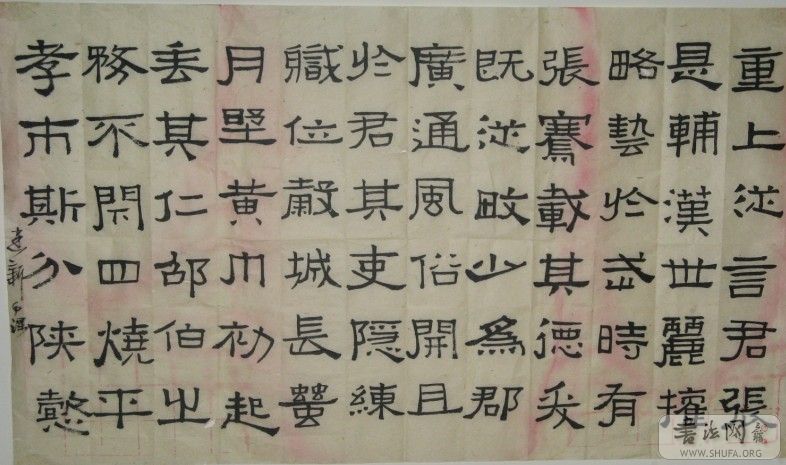 重上從言君張
是輔漢世麗擁
略藝於武時有
張騫載其德爰
既從畋少為郡
廣通風俗開且
於君其吏隱練
職位穀城長蠶
月堅黃巾初起
丟其仁邵伯之
務不閇四燒平
孝市斯分陝憨
建新
书法网
WWW.SHUFA.ORG